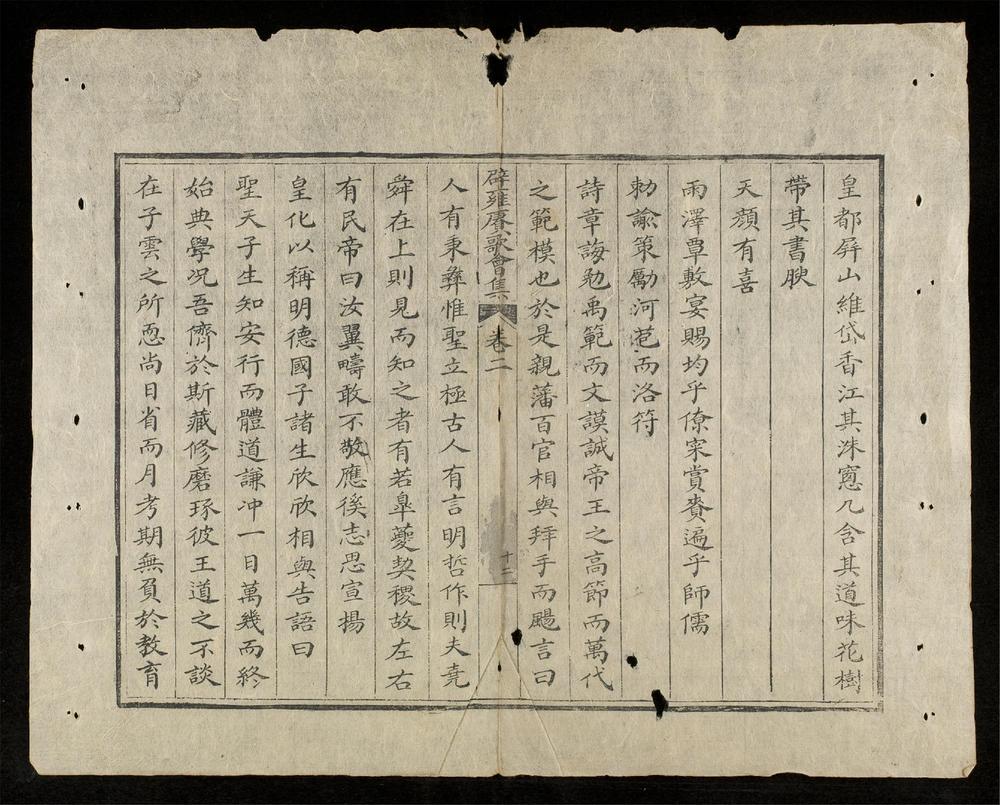 皇都屏山維岱香江其洙窻几含其道味花樹
帶其書腴
天顏有喜
雨澤覃敷宴賜均乎僚寀賞賚遍乎師儒
勅諭策勵河范而洛符
詩章誨勉禹範而文謨誠帝王之高節而萬代
之範模也於是親藩百官相與拜手而颺言曰
辟雍賡歌會集 卷二
十二
人有秉彝惟聖立極古人有言明哲作則夫堯
舜在上則見而知之者有若臯夔契稷故左右
有民帝曰汝翼疇敢不敬應徯志思宣揚
皇化以稱明德國子諸生欣欣相與告語曰
聖天子生知安行而體道謙冲一日萬幾而終
始典學况吾儕於斯藏修磨琢彼王道之不談
在子雲之所恧尚日省而月考期無負於教育